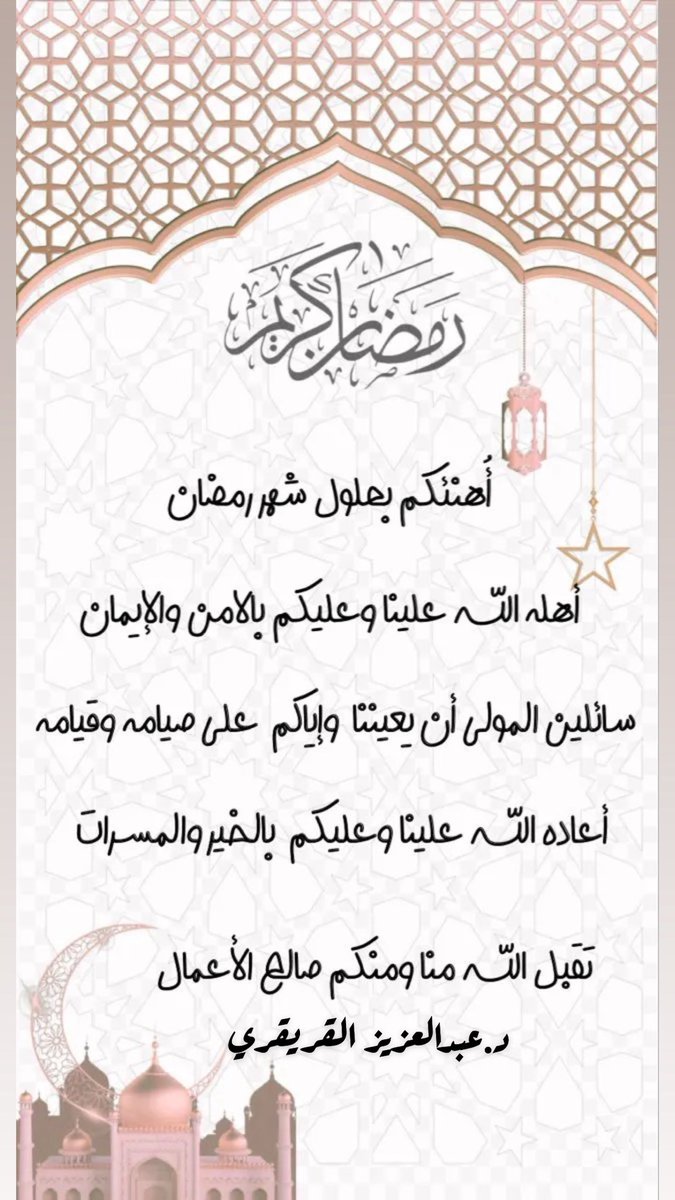 رمضان كريم
أُهنئكم بحلول شهر رمضان
أهله اللّه علينا وعليكم بالامن والإيمان
سائلين المولى أن يعيننا وإياكم على صيامه وقيامه
أعاده اللّه علينا وعليكم بالخير والمسرات
تقبل اللّه منا ومنكم صالح الأعمال
د.عبدالعزيز القريقري